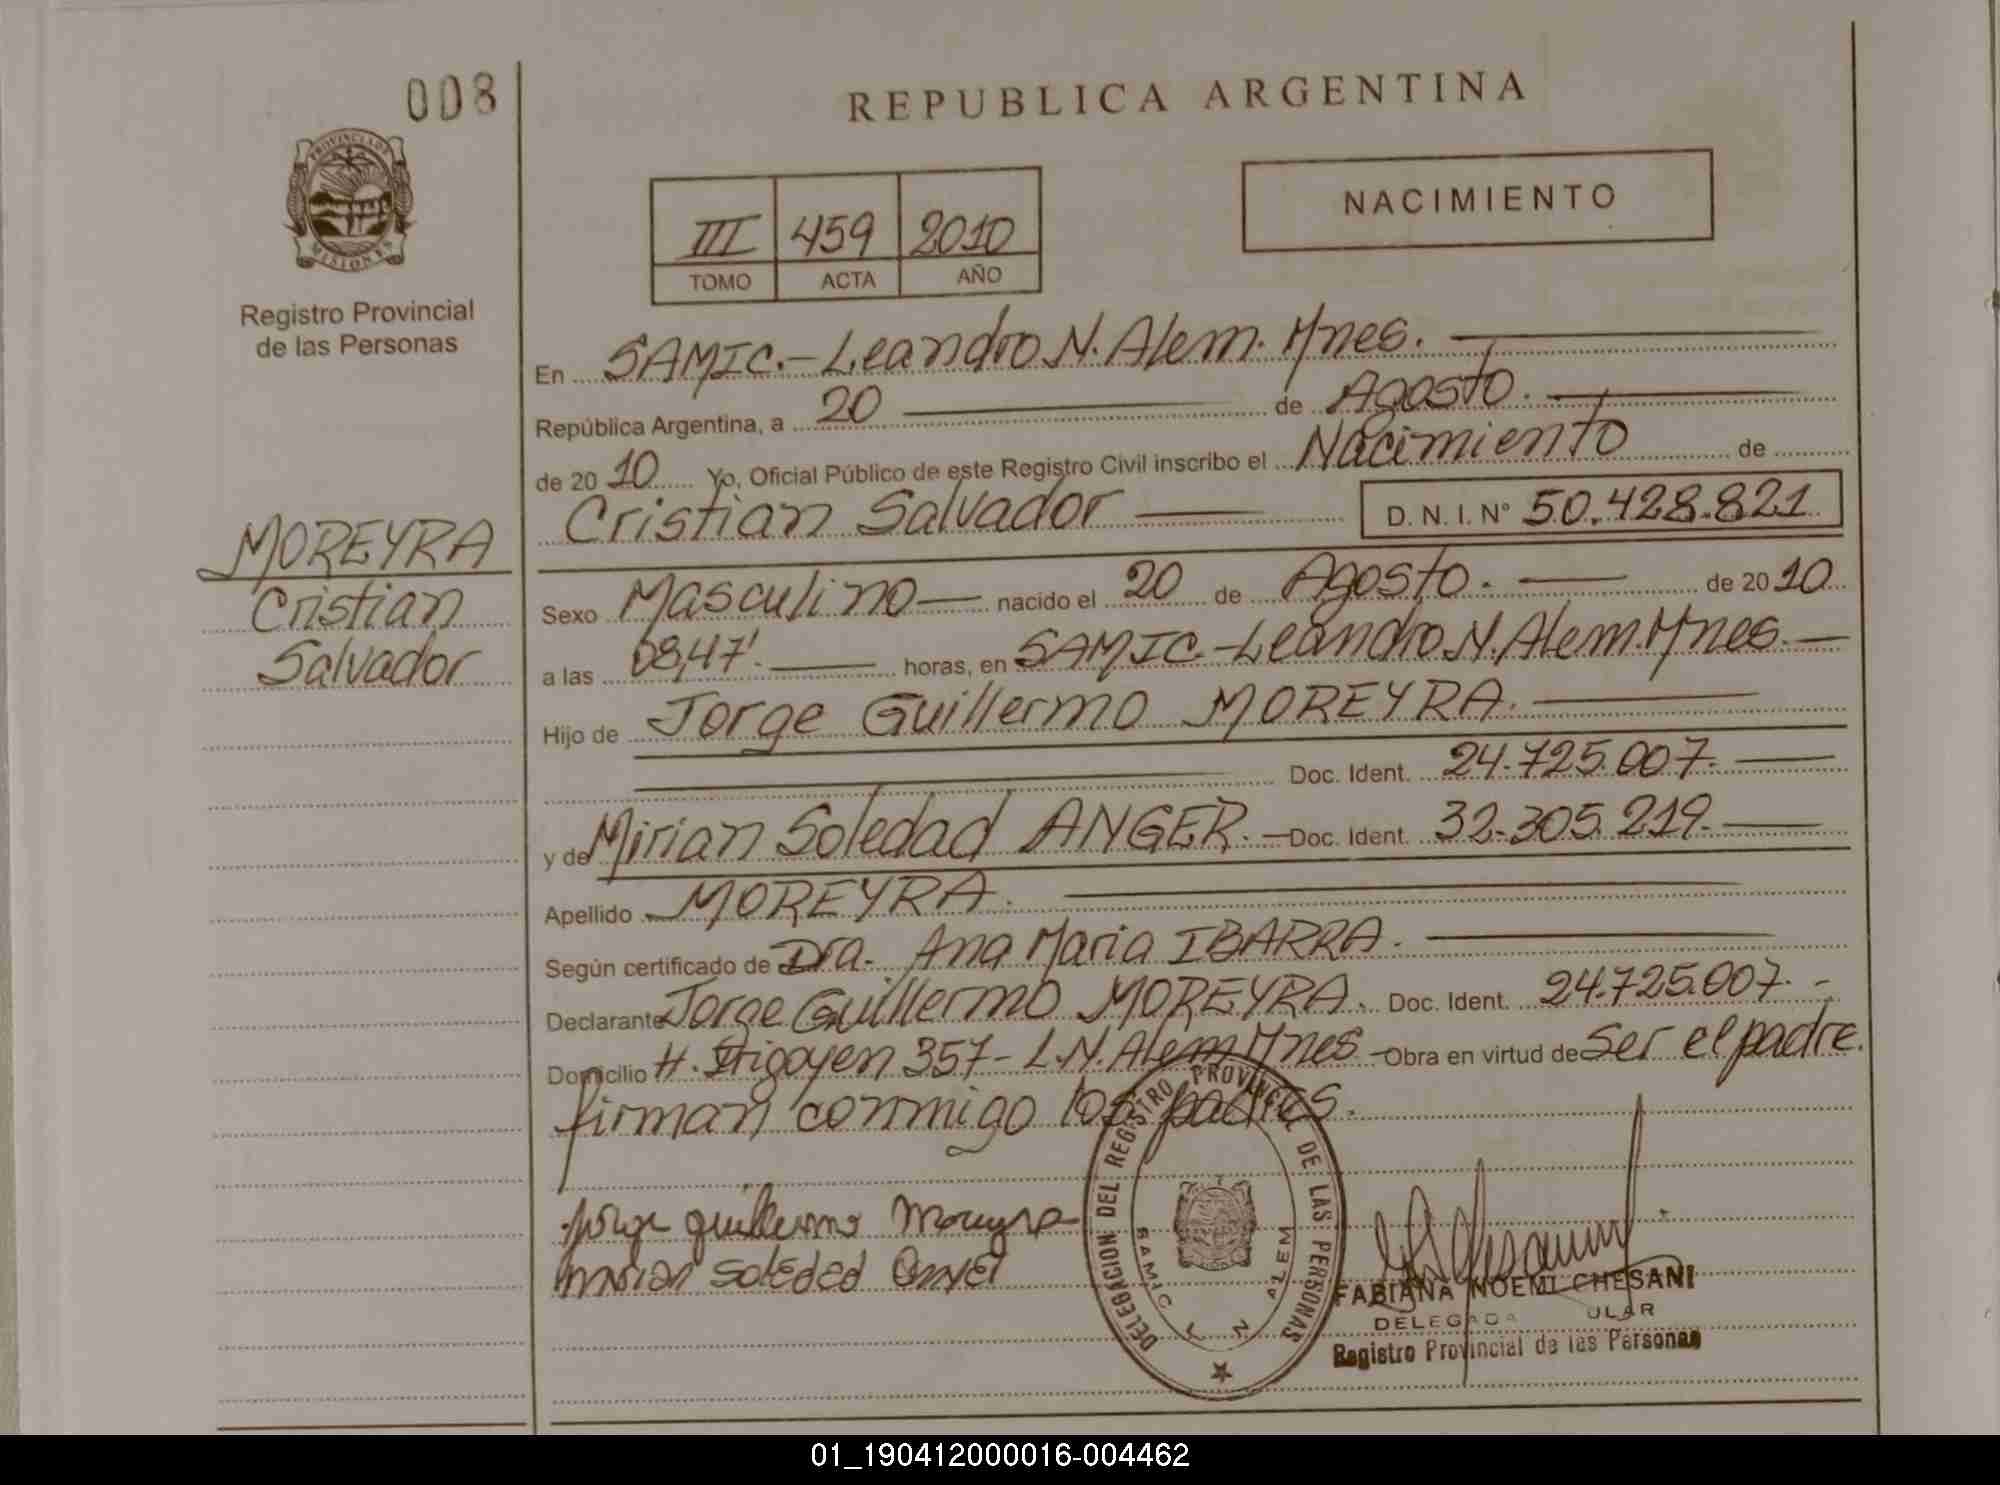 008
REPUBLICA ARGENTINA
PROVINCIA DE
MISIONES
NACIMIENTO
III 459 2010
TOMO ACTA AÑO
Registro Provincial
de las Personas
En SAMIC.- Leandro N. Alem. Mnes.
República Argentina, a 20 de Agosto.
de 20 10 Yo, Oficial Público de este Registro Civil inscribo el Nacimiento de
Cristian Salvador D. N. I. N° 50.428.821
MOREYRA
Cristian
Salvador
Sexo Masculino nacido el 20 de Agosto. de 20 10
a las 08,47'. horas, en SAMIC.-Leandro N. Alem. Mnes.
Hijo de Jorge Guillermo MOREYRA.
Doc. Ident. 24.725.007.
y de Mirian Soledad ANGER. Doc. Ident. 32.305.219.
Apellido MOREYRA.
Según certificado de Dra. Ana Maria IBARRA.
Declarante Jorge Guillermo MOREYRA. Doc. Ident. 24.725.007.-
Domicilio H. Irigoyen 357- L.N. Alem Mnes - Obra en virtud de Ser el padre.
firman conmigo los padres.
Jorge guillermo Moreyra
mirian soleded Anger
DELEGACION DEL REGISTRO PROVINCIAL DE LAS PERSONAS
SAMIC L N ALEM
FABIANA NOEMI CHESANI
DELEGADA ULAR
Registro Provincial de las Personas
01_190412000016-004462